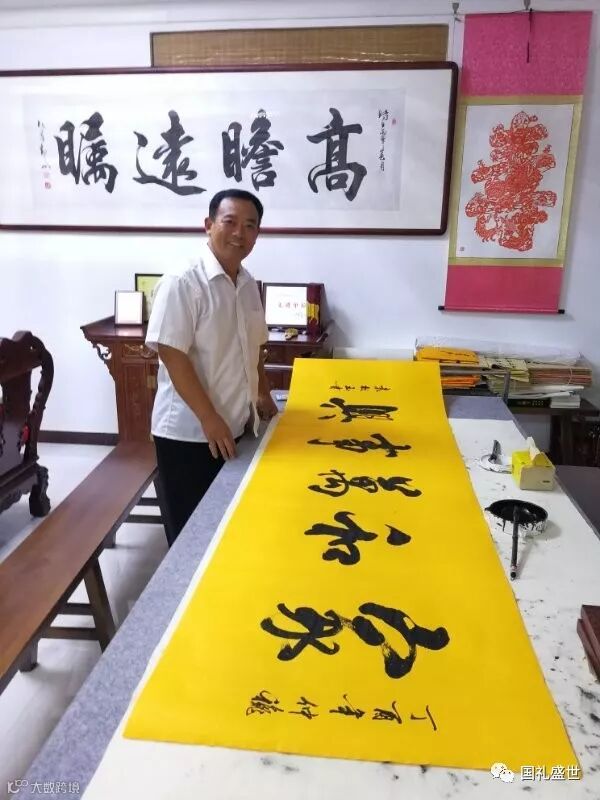 高瞻遠矚
丁酉年仲龝
家和萬事興
大数跨境
国礼盛世